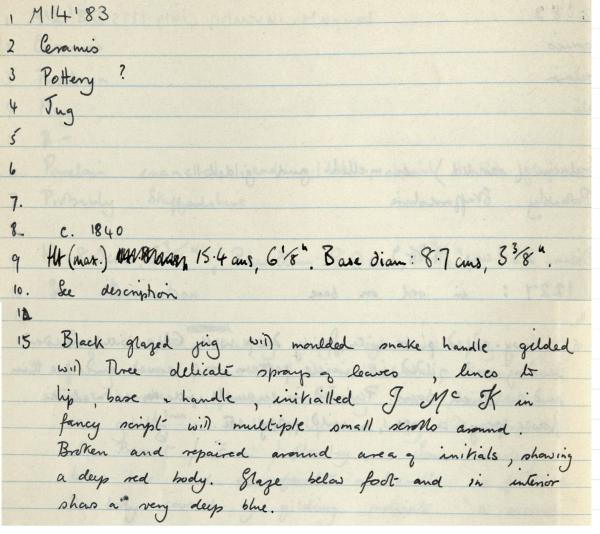 1 M14'83
2 Ceramis
3 Pottery ?
4 Jug
5
6
7.
8. c. 1840
9 Ht (max.) 15.4 cms, 6 1/8". Base diam: 8.7 cms, 3 3/8".
10. See description
12
15 Black glazed jug with moulded snake handle gilded
with Three delicate sprays of leaves, lines to
lip, base & handle, initialled J Mc K in
fancy script with multiple small scrolls around.
Broken and repaired around area of initials, showing
a deep red body. Glaze below foot and in interior
shows a very deep blue.